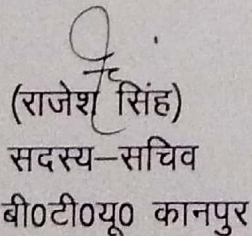 (राजेश सिंह)
सदस्य–सचिव
बी0टी0यू0 कानपुर